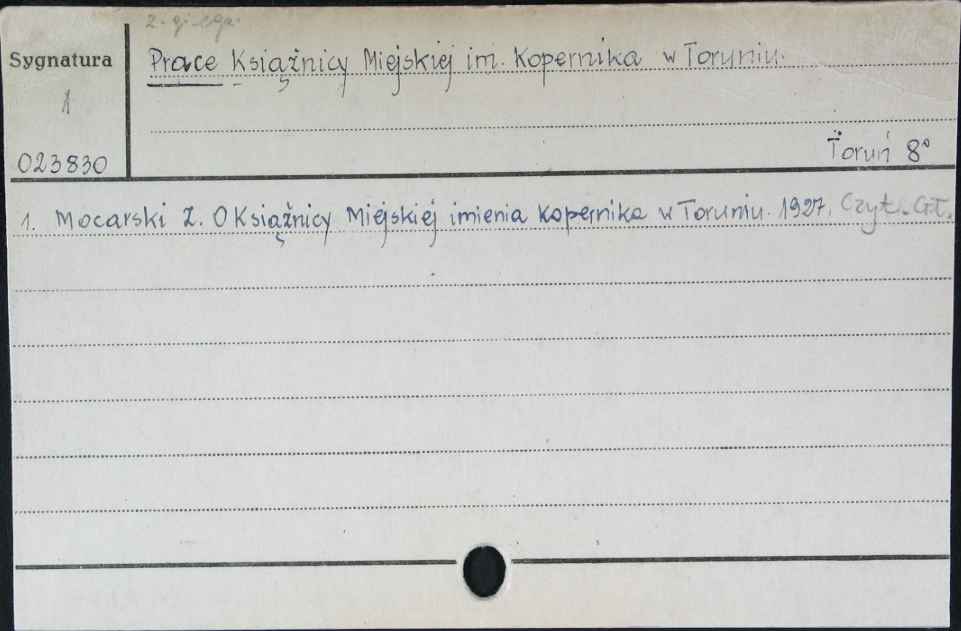 Sygnatura
Prace Książnicy Miejskiej im. Kopernika w Toruniu.
1
023830
Toruń 8°
1. Mocarski Z. O Książnicy Miejskiej imienia Kopernika w Toruniu. 1927. Czyt. Gł.